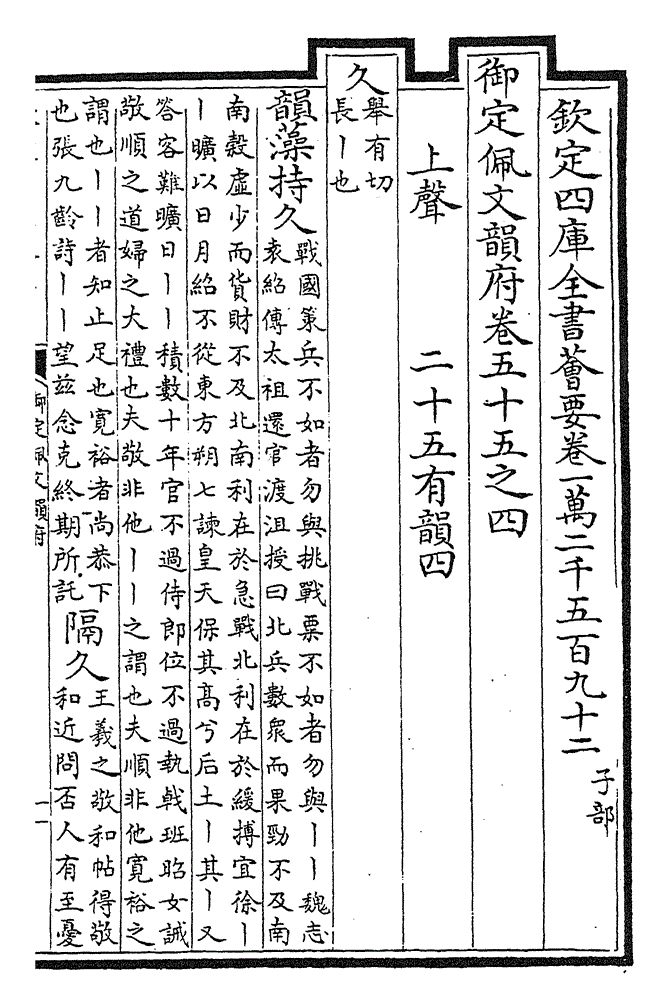 欽定四庫全書薈要卷一萬二千五百九十二 子部
御定佩文韻府卷五十五之四
上聲 二十五有韻四
久 舉有切
長丨也
韻藻持久 戰國策兵不如者勿與挑戰粟不如者勿與丨丨魏志
袁紹傳太祖還官渡沮授曰北兵數衆而果勁不及南
南穀虛少而貨財不及北南利在於急戰北利在於緩搏宜徐丨
丨曠以日月紹不從東方朔七諫皇天保其高兮后土丨其丨又
答客難曠日丨丨積數十年官不過侍郎位不過執戟班昭女誡
敬順之道婦之大禮也夫敬非他丨丨之謂也夫順非他寬裕之
謂也丨丨者知止足也寬裕者尚恭下
也張九齡詩丨丨望兹念克終期所託
隔久 王羲之敬和帖得敬
和近問否人有至憂
御定佩文韻府 一